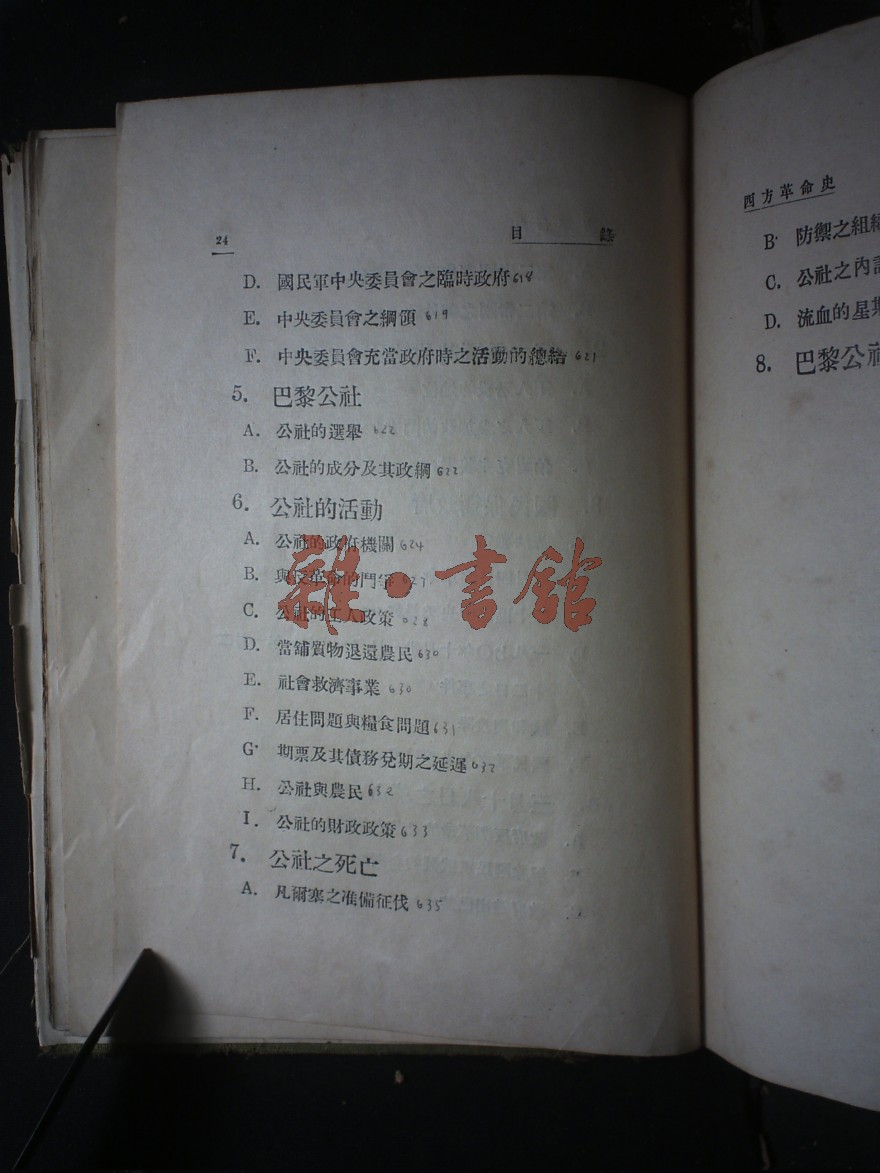 24 目 錄
D. 國民軍中央委員會之臨時政府 618
E. 中央委員會之綱領 619
F. 中央委員會充當政府時之活動的總結 621
5. 巴黎公社
A. 公社的選舉 622
B. 公社的成分及其政綱 622
6. 公社的活動
A. 公社的政府機關 624
B. 與反革命的鬥爭 627
C. 公社的工人政策 628
D. 當舖質物退還農民 630
E. 社會救濟事業 630
F. 居住問題與糧食問題 631
G. 期票及其債務兌期之延遲 632
H. 公社與農民 632
I. 公社的財政政策 633
7. 公社之死亡
A. 凡爾塞之准備征伐 635
雜·書館
西方革命史
B. 防禦之組
C. 公社之內
D. 流血的星期
8. 巴黎公社